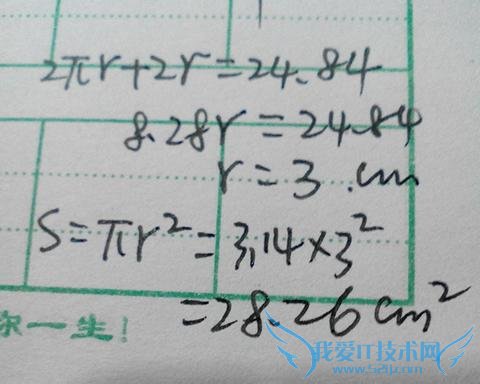 2πr+2r=24.84
8.28r=24.84
r=3.cm
S=πr²=3.14×3²
=28.26cm²
尔一生!
我爱IT技术网
www.52ij.com